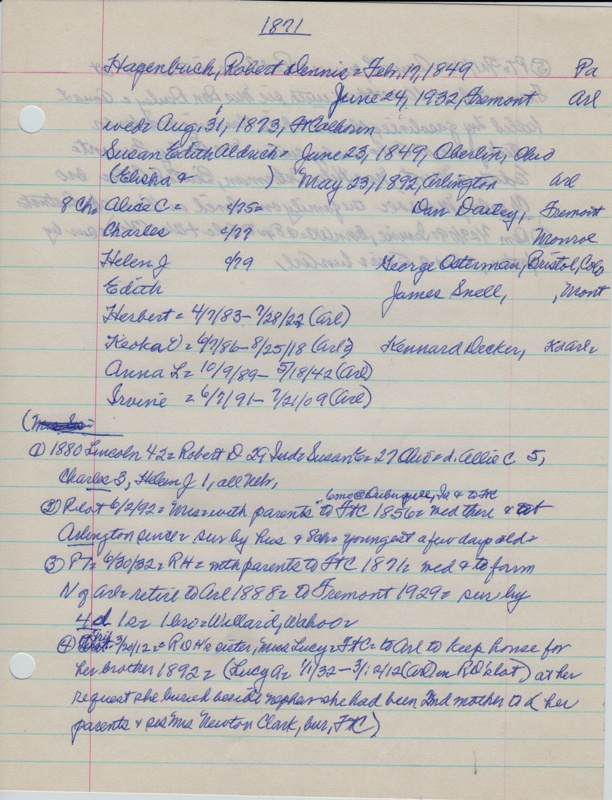 1871
Hagenbuch, Robert Dennis = Feb, 17, 1849 Pa
June 24, 1932, Fremont Arl
wed = Aug, 31, 1873, Ft Calhoun
Susan Edith Aldrich = June 23, 1849, Oberlin, Ohio
(Elisha & ) May 23, 1892, Arlington Arl
8 Ch = Alice C = 4/75 = Dan Dautey, Fremont
Charles 4/77 Monroe
Helen J 4/79 George Osterman, Bristol, Colo
Edith James Snell, , Mont
Herbert = 4/7/83 - 7/28/22 (Arl)
Keoka V = 6/7/86 - 8/25/18 (Arl) Kennard Decker,
Anna L = 10/9/89 - 5/18/42 (Arl)
Irvine = 6/7/91 - 7/21/09 (Arl)
① 1880 Lincoln 42 = Robert D 29 Ind = Susan E = 27 Ohio = d. Allie C 5,
Charles 3, Helen J 1, all Nebr,
6 mo @ Dubuque, Ia & to FtC
② Pilot 6/2/92 = Mrs = with parents to FtC 1856 = wed there & to
Arlington since = sur by hus & 8 ch = youngest a few days old =
③ FT = 6/30/32 = RH = with parents to FtC 1871 = wed & to farm
N of Arl = retire to Arl 1888 = to Fremont 1929 = sur by
4 d 1 s = 1 bro = Willard, Wahoo =
④ 3/20/12 = R D H's sister, Miss Lucy = FtC = to Arl to keep house for
her brother 1892 = (Lucy A = 1/1/32 - 3/12/12 (Arl) in RD's lot) at her
request she buried beside nephew she had been 2nd mother to & her
parents & sis Mrs Newton Clark, bur, FtC)